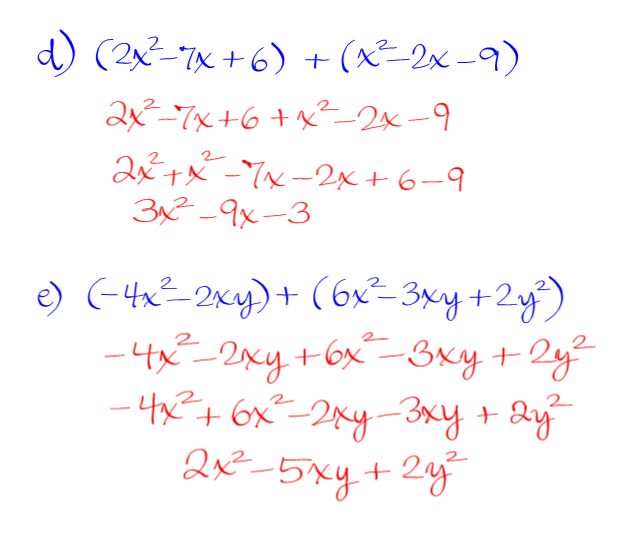 d) (2x²-7x+6) + (x²-2x-9)
2x²-7x+6+x²-2x-9
2x²+x²-7x-2x+6-9
3x²-9x-3
e) (-4x²-2xy)+(6x²-3xy+2y²)
-4x²-2xy+6x²-3xy+2y²
-4x²+6x²-2xy-3xy+2y²
2x²-5xy+2y²